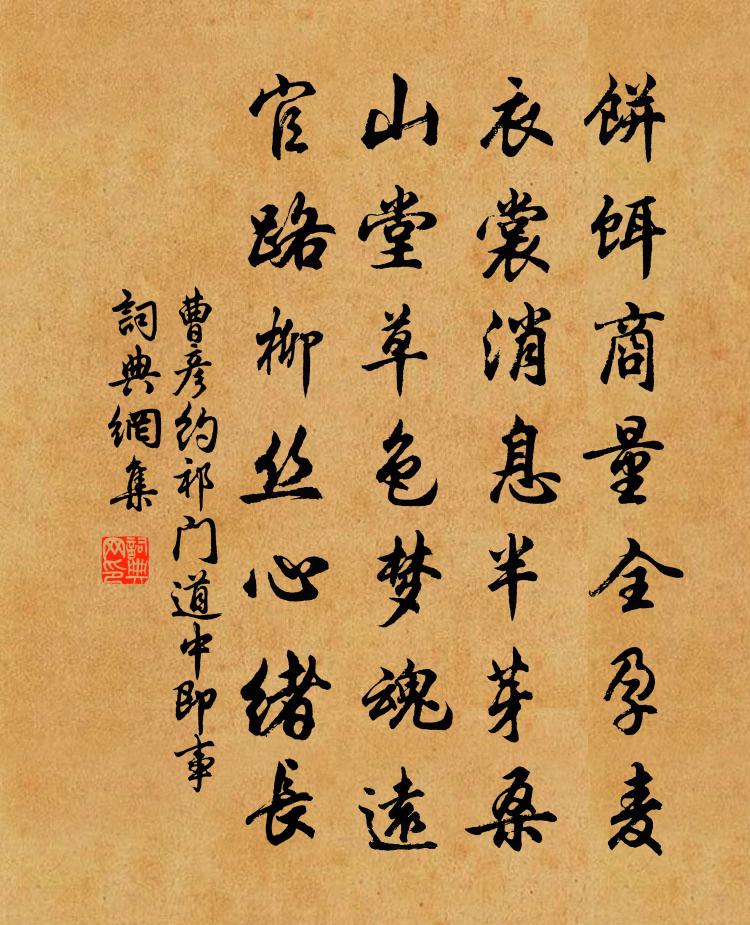 餅餌商量全孕麦
衣裳消息半芽桑
山堂草色梦魂遠
官路柳丝心緒長
曹彦约祁门道中即事
詞典網集
詞典网印